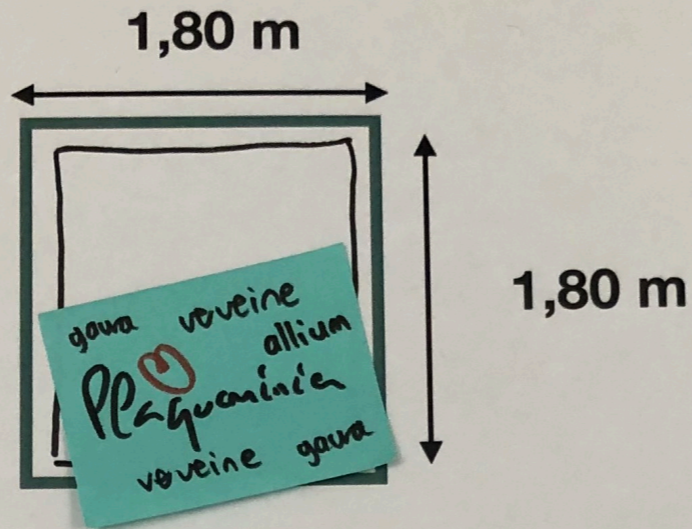 1,80 m
1,80 m
gaura veveine
allium
Plaqueminier
veveine gaura